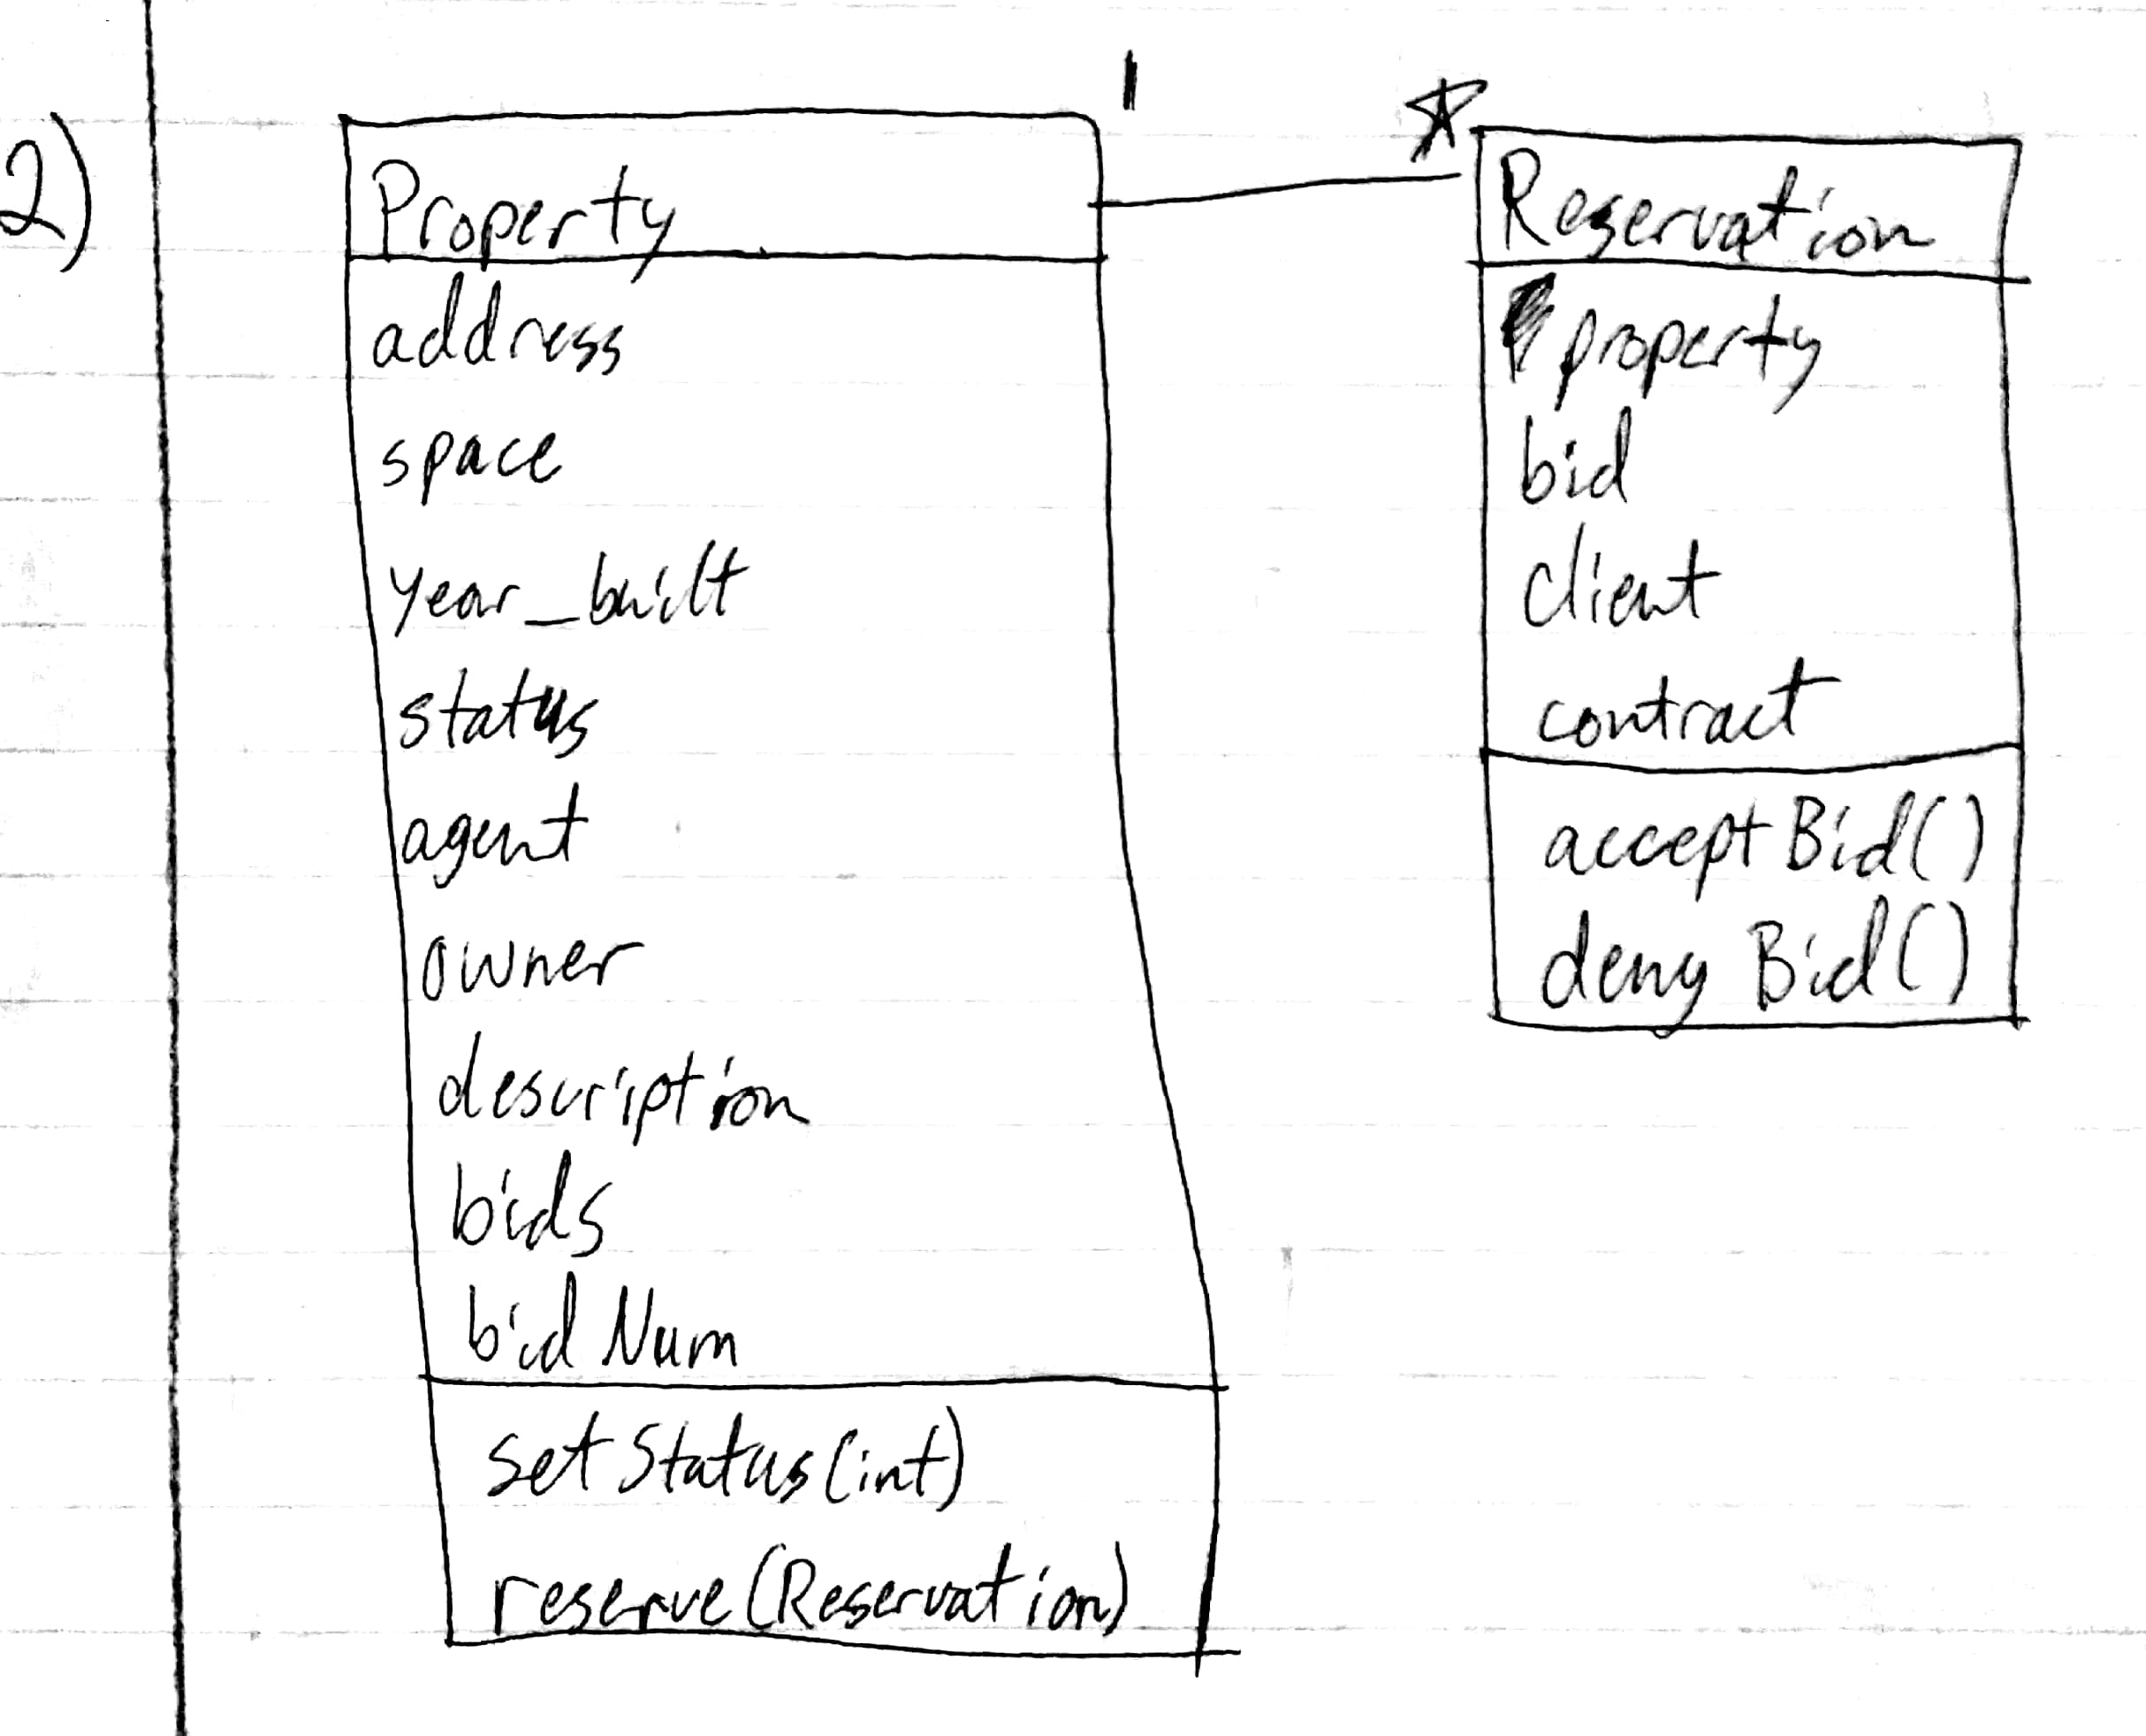 2)
1
*
Property
address
space
year_built
status
agent
owner
description
bids
bidNum
setStatus(int)
reserve(Reservation)
Reservation
property
bid
client
contract
acceptBid()
denyBid()